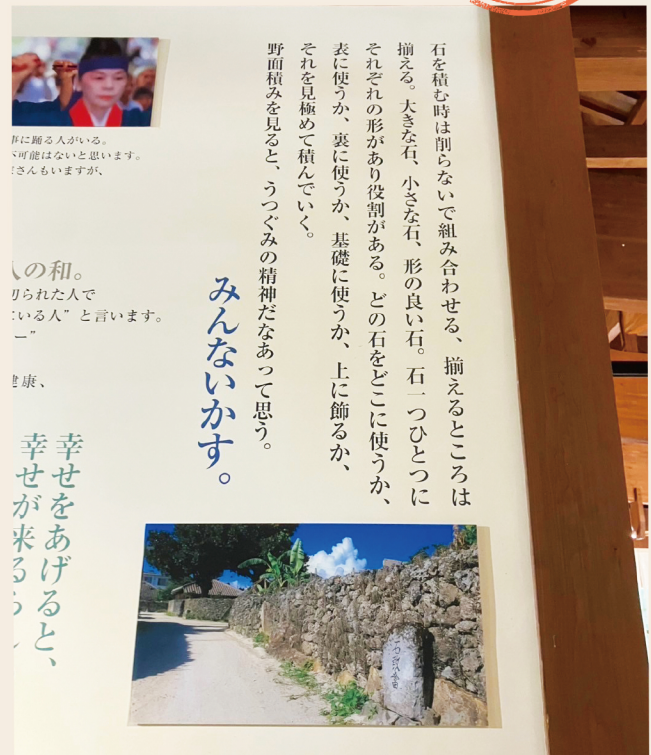 石を積む時は削らないで組み合わせる、揃えるところは
揃える。大きな石、小さな石、形の良い石。石一つひとつに
それぞれの形があり役割がある。どの石をどこに使うか、
表に使うか、裏に使うか、基礎に使うか、上に飾るか、
それを見極めて積んでいく。
野面積みを見ると、うつぐみの精神だなあって思う。
みんないかす。
事に踊る人がいる。
不可能はないと思います。
さんもいますが、
人の和。
切られた人で
にいる人”と言います。
ー”
健康、
幸せをあげると、
幸せが来る